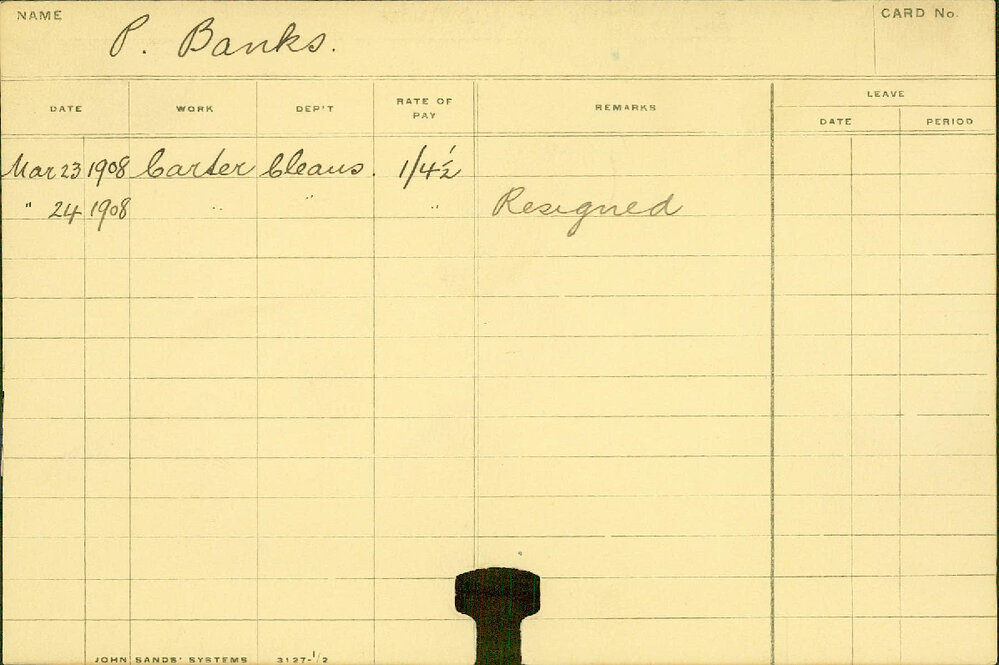 NAME P. Banks. CARD No.
DATE WORK DEP'T RATE OF PAY REMARKS LEAVE
DATE PERIOD
Mar 23 1908 Carter Cleans. 1/4½
" 24 1908 " " " Resigned
JOHN SANDS' SYSTEMS 3127-1/2